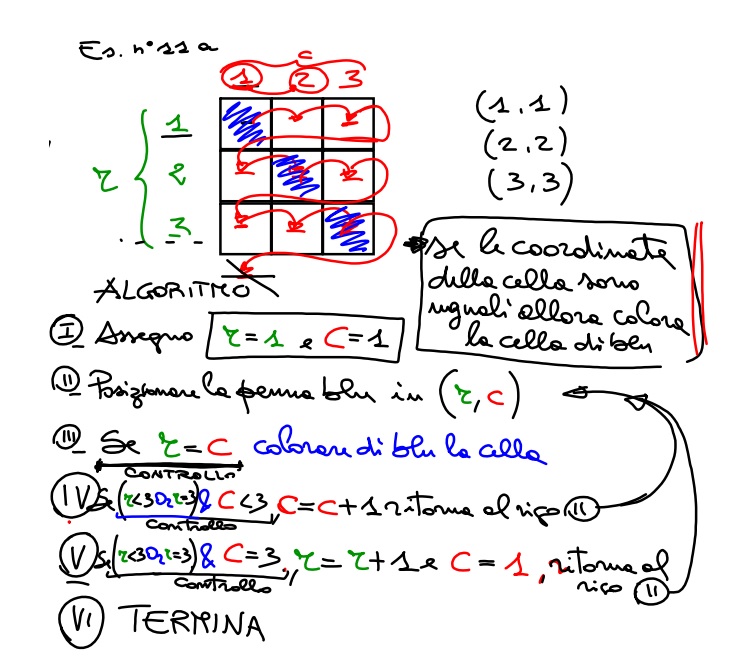 Es. n°11 a
c
1 2 3
r
1
2
3
(1,1)
(2,2)
(3,3)
se le coordinate
della cella sono
uguali allora colora
la cella di blu
ALGORITMO
I Assegno r=1 e C=1
II Posizionare la penna blu in (r,c)
III Se r=C colorare di blu la cella
CONTROLLO
IV Se (r<3 Or r=3) & C<3 C=C+1 ritorna al rigo II
Controllo
V Se (r<3 Or r=3) & C=3, r=r+1 e C=1, ritorna al
rigo II
Controllo
VI TERMINA